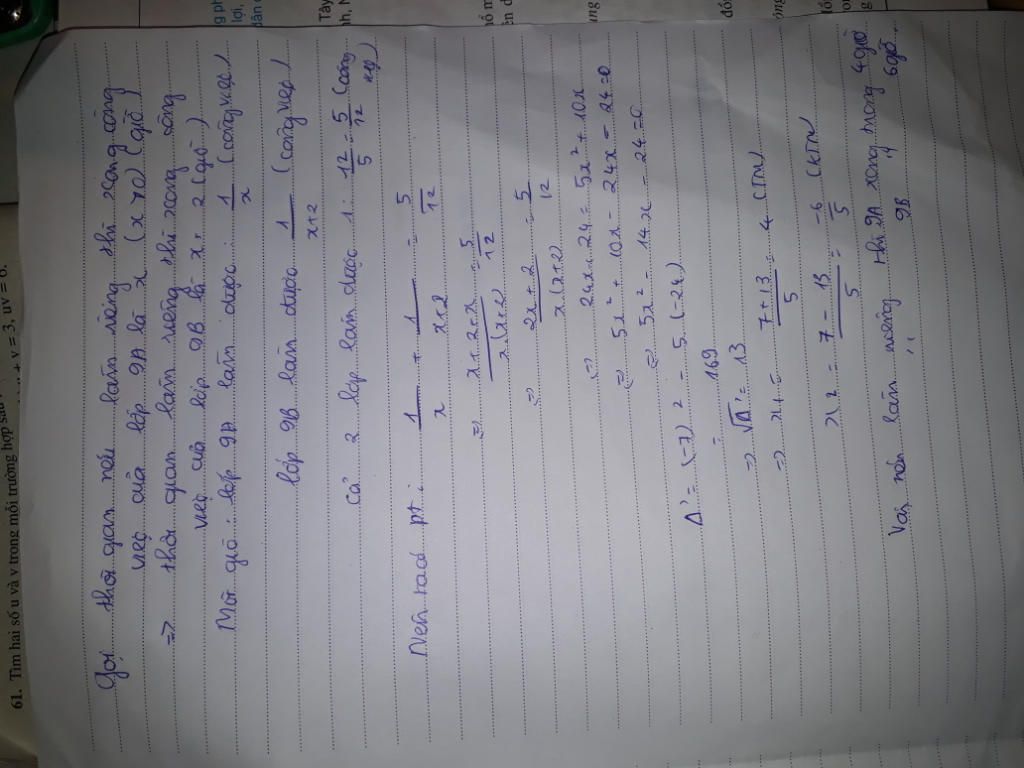 61. Tìm hai số u và v trong mỗi trường hợp sau
u + v = 3, uv = 6.
Gọi thời gian nếu làm riêng thì xong công
việc của lớp 9A là x (x > 0) (giờ)
=> thời gian làm riêng thì xong công
việc của lớp 9B là x + 2 (giờ)
Mỗi giờ : lớp 9A làm được : 1/x (công việc)
lớp 9B làm được 1/(x+2) (công việc)
Cả 2 lớp làm được 1 : 12/5 = 5/12 (công
việc)
Nên ta có pt : 1/x + 1/(x+2) = 5/12
<=> (x+2+x)/(x(x+2)) = 5/12
<=> (2x+2)/(x(x+2)) = 5/12
<=> 24x + 24 = 5x² + 10x
<=> 5x² + 10x - 24x - 24 = 0
<=> 5x² - 14x - 24 = 0
Δ' = (-7)² - 5.(-24)
= 169
=> √Δ' = 13
=> x1 = (7+13)/5 = 4 (TM)
x2 = (7-13)/5 = -6/5 (KTM)
Vậy nếu làm riêng thì 9A xong trong 4 giờ
,, 9B ,, 6 giờ.